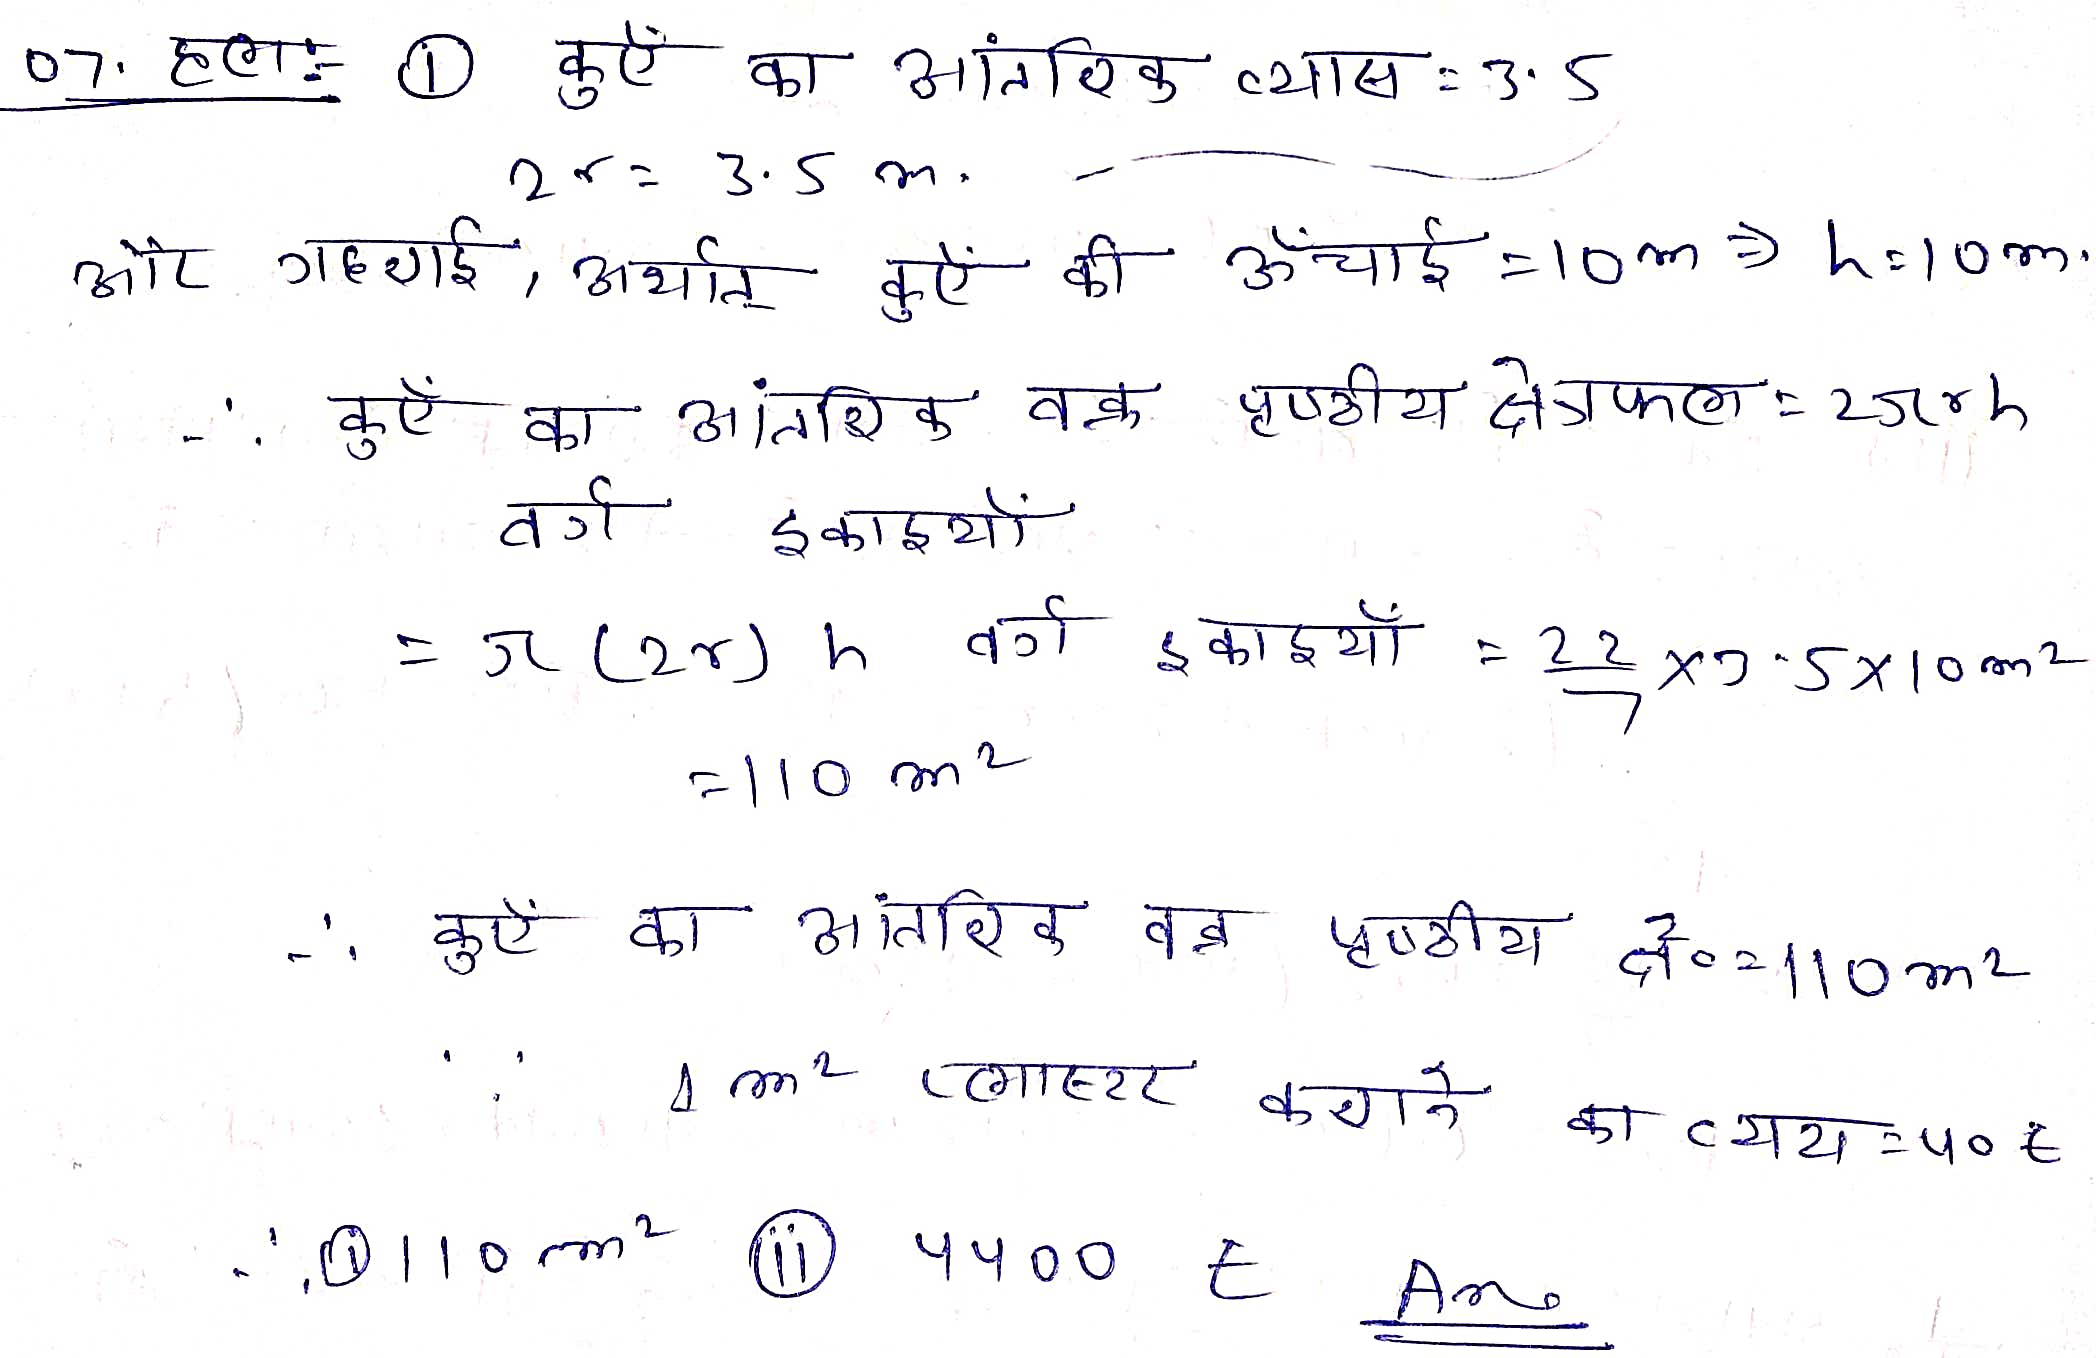 07. हल:- (i) कुएँ का आंतरिक व्यास = 3.5
2r = 3.5 m.
और गहराई, अर्थात् कुएँ की ऊँचाई = 10 m ⇒ h = 10 m.
∴ कुएँ का आंतरिक वक्र पृष्ठीय क्षेत्रफल = 2πrh
वर्ग इकाइयाँ
= π (2r) h वर्ग इकाइयाँ = 22/7 × 3.5 × 10 m²
= 110 m²
∴ कुएँ का आंतरिक वक्र पृष्ठीय क्षे० = 110 m²
∵ 1 m² प्लास्टर कराने का व्यय = 40 ₹
∴ (i) 110 m² (ii) 4400 ₹ Ans